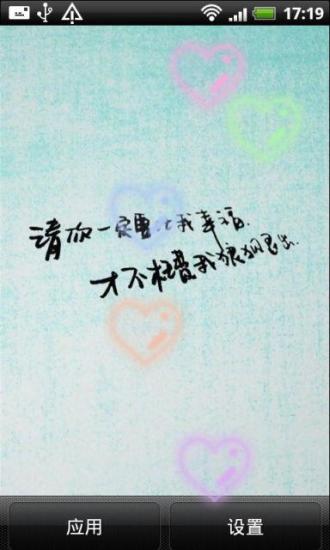 17:19
请你一定要比我幸福.
才不枉费我狼狈退出.
应用
设置